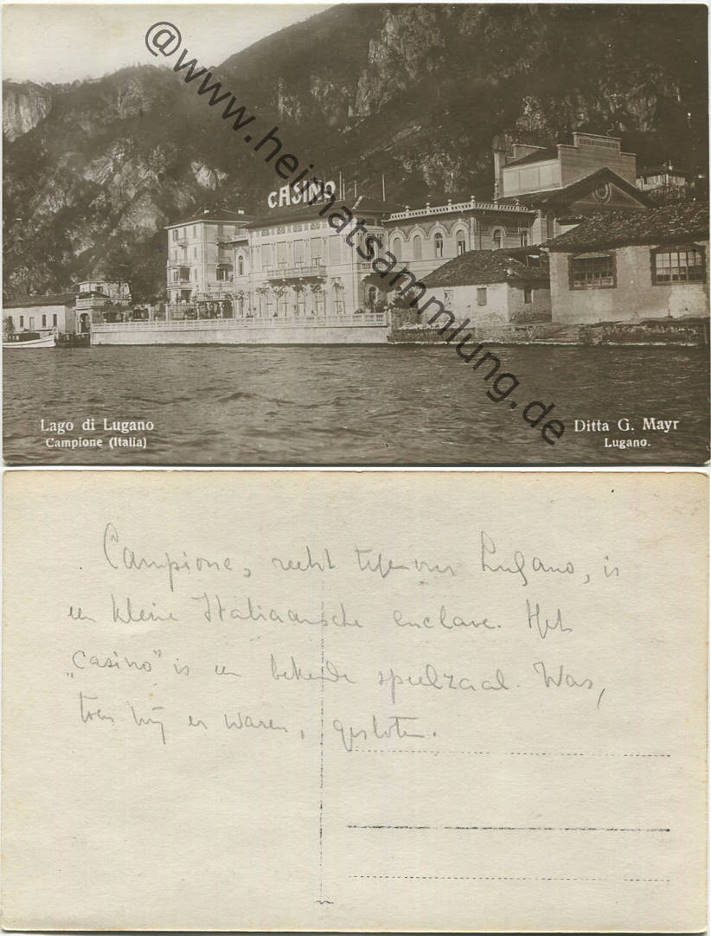 @www.heimatsammlung.de
CASINO
Lago di Lugano
Campione (Italia)
Ditta G. Mayr
Lugano.
Campione, recht tegenover Lugano, is
een kleine Italiaansche enclave. Het
"Casino" is een bekende speelzaal. Was,
toen wij er waren, gesloten.